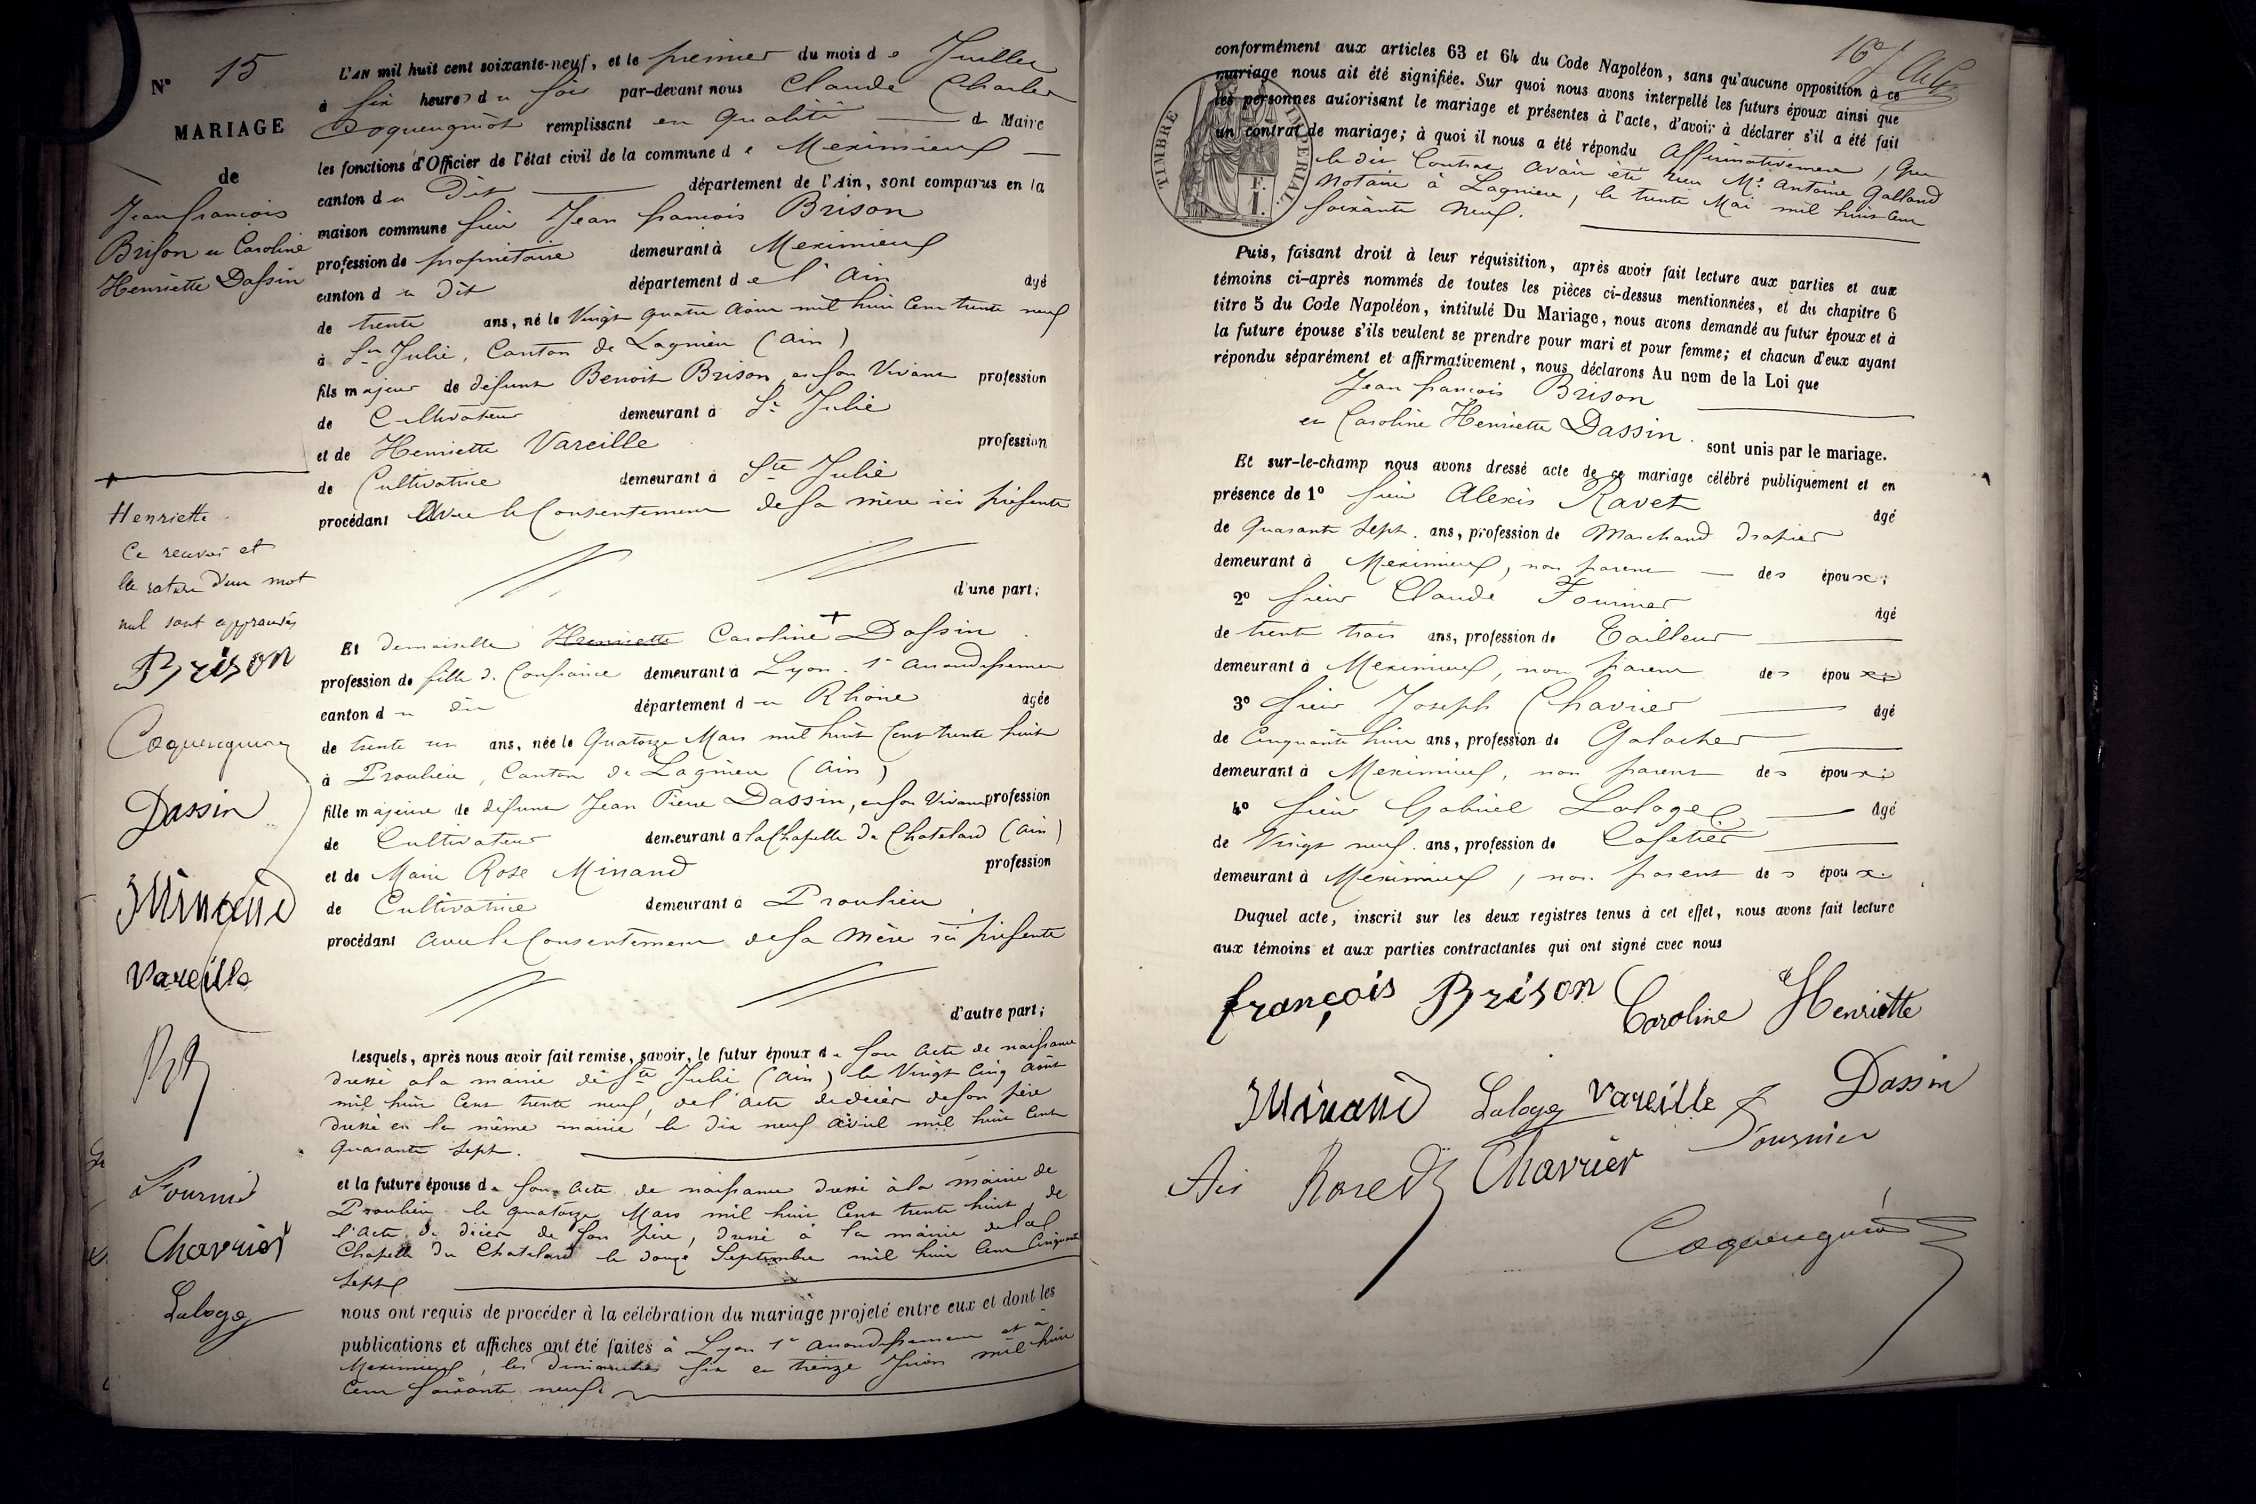 N° 15
MARIAGE
de
Jean françois
Brison et Caroline
Henriette Dassin
Henriette
Ce renvoi et
la rature d'un mot
nul sont approuvés
Brison
Coquengniot
Dassin
Minand
Vareille
Fournier
Chavrier
Laloge
L'AN mil huit cent soixante-neuf, et le premier du mois de Juillet
à six heures du soir par-devant nous Claude Charles
Coquengniot remplissant en qualité de Maire
les fonctions d'Officier de l'état civil de la commune de Meximieux
canton du dit département de l'Ain, sont comparus en la
maison commune sieur Jean françois Brison
profession de propriétaire demeurant à Meximieux
canton du dit département de l'Ain âgé
de trente ans, né le Vingt quatre Aout mil huit cent trente neuf
à Ste Julie, Canton de Lagnieu (Ain)
fils majeur de défunt Benoit Brison en son Vivant profession
de Cultivateur demeurant à Ste Julie
et de Henriette Vareille profession
de Cultivatrice demeurant à Ste Julie
procédant Avec le Consentement de sa mère ici présente
d'une part;
Et demoiselle Henriette Caroline + Dassin
profession de fille de Confiance demeurant à Lyon 1er arrondissement
canton du dit département du Rhône âgée
de trente un ans, née le Quatorze Mars mil huit Cent trente huit
à Proulieu, Canton de Lagnieu (Ain)
fille majeure de défunt Jean Pierre Dassin, en son Vivant profession
de Cultivateur demeurant à la Chapelle du Chatelard (Ain)
et de Marie Rose Minand profession
de Cultivatrice demeurant à Proulieu
procédant avec le Consentement de sa Mère ici présente
d'autre part;
Lesquels, après nous avoir fait remise, savoir, le futur époux de son acte de naissance
dressé à la mairie de Ste Julie (Ain) le Vingt Cinq Août
mil huit Cent trente neuf, de l'acte de décès de son père
dressé en la même mairie le dix neuf avril mil huit Cent
Quarante sept.
et la future épouse de son acte de naissance dressé à la mairie de
Proulieu le quatorze Mars mil huit Cent trente huit, de
l'acte de décès de son père, dressé à la mairie de la
Chapelle du Chatelard le douze Septembre mil huit Cent Cinquante
sept
nous ont requis de procéder à la célébration du mariage projeté entre eux et dont les
publications et affiches ont été faites à Lyon 1er arrondissement et à
Meximieux, les dimanches six et treize Juin mil huit
Cent soixante neuf.
conformément aux articles 63 et 64 du Code Napoléon, sans qu'aucune opposition à ce
mariage nous ait été signifiée. Sur quoi nous avons interpellé les futurs époux ainsi que
les personnes autorisant le mariage et présentes à l'acte, d'avoir à déclarer s'il a été fait
un contrat de mariage; à quoi il nous a été répondu Affirmativement, Que
le dit Contrat avait été reçu Me Antoine Galland
Notaire à Lagnieu, le trente Mai mil huit Cent
soixante neuf.
TIMBRE IMPERIAL
F.
1.
Puis, faisant droit à leur réquisition, après avoir fait lecture aux parties et aux
témoins ci-après nommés de toutes les pièces ci-dessus mentionnées, et du chapitre 6
titre 5 du Code Napoléon, intitulé Du Mariage, nous avons demandé au futur époux et à
la future épouse s'ils veulent se prendre pour mari et pour femme; et chacun d'eux ayant
répondu séparément et affirmativement, nous déclarons Au nom de la Loi que
Jean françois Brison
et Caroline Henriette Dassin. sont unis par le mariage.
Et sur-le-champ nous avons dressé acte de ce mariage célébré publiquement et en
présence de 1° sieur Alexis Ravet âgé
de Quarante Sept. ans, profession de Marchand drapier
demeurant à Meximieux, non parent des époux;
2° sieur Claude Fournier âgé
de trente trois ans, profession de Tailleur
demeurant à Meximieux, non parent des époux;
3° sieur Joseph Chavrier âgé
de Cinquante huit ans, profession de Galocher
demeurant à Meximieux, non parent des époux;
4° sieur Gabriel Laloge âgé
de Vingt neuf. ans, profession de Cafetier
demeurant à Meximieux, non parent des époux.
Duquel acte, inscrit sur les deux registres tenus à cet effet, nous avons fait lecture
aux témoins et aux parties contractantes qui ont signé avec nous
françois Brison Caroline Henriette
Dassin
Minand Laloge Vareille
Fournier
Chavrier
Coquengniot